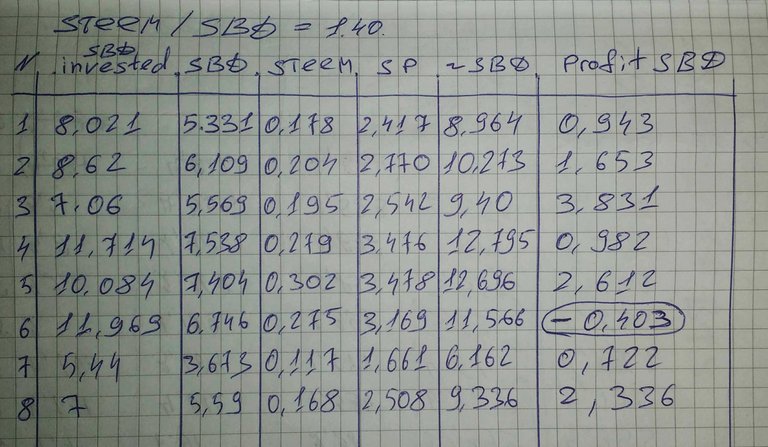 STEEM / SBD = 1.40.
N. SBD invested. SBD. STEEM. SP ~SBD. Profit SBD
1 8,021 5.331 0,178 2,417 8,964 0,943
2 8,62 6,109 0,204 2,770 10,273 1,653
3 7.06 5,569 0,195 2,542 9,40 3,831
4 11,714 7,538 0,279 3,476 12,795 0,982
5 10.084 7,404 0,302 3,478 12,696 2,612
6 11,969 6.746 0,275 3,169 11,566 -0,403
7 5,44 3,673 0,117 1,661 6,162 0,722
8 7 5,59 0,168 2,508 9,336 2,336